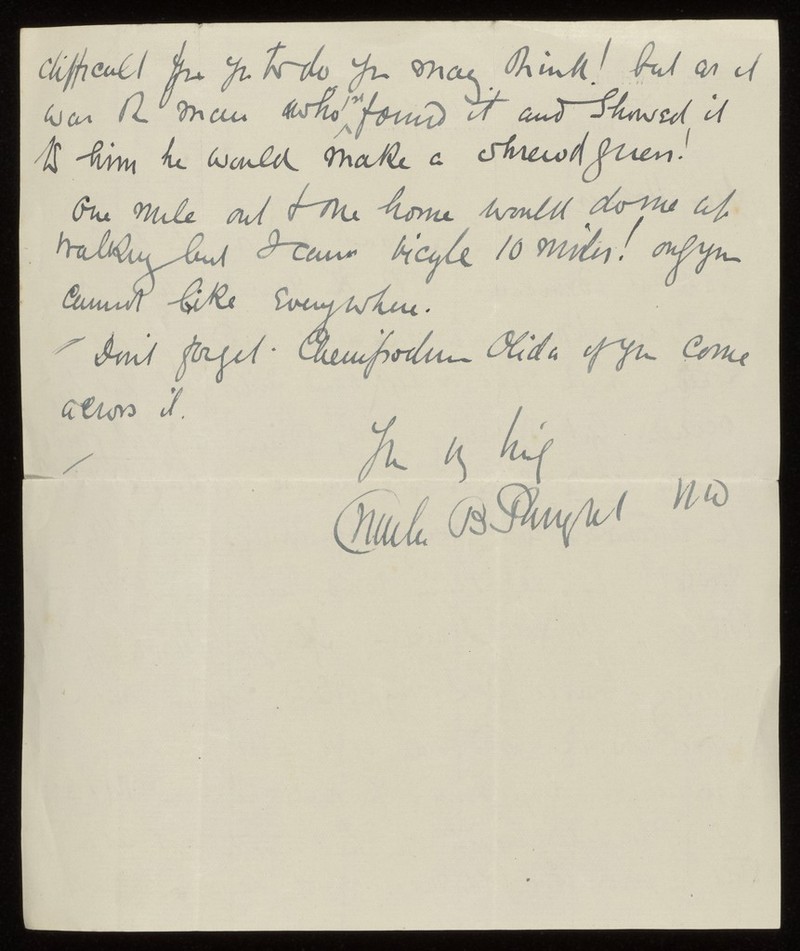 difficult for you to do you may think! but as it
was the man who 1st found it and showed it
to him he would make a shrewd guess!
One mile out & one home would do me up
walking but I can bicycle 10 miles! only you
cannot bike everywhere.
Dont forget. Chenopodium Olida if you come
across it.
Charles B Plowright MD